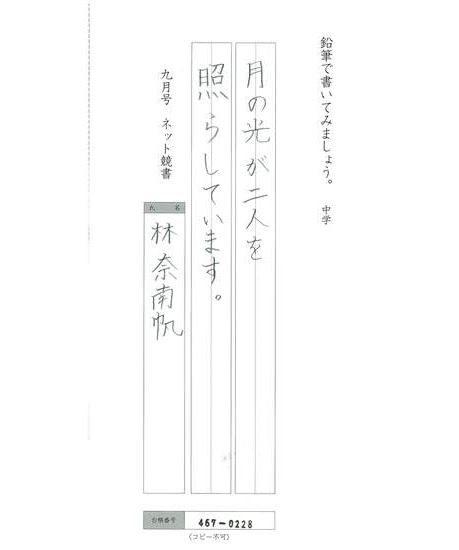 鉛筆で書いてみましょう。 中学
月の光が二人を
照らしています。
九月号 ネット競書
氏 名
林 奈南帆
台帳番号 467-0228
(コピー不可)